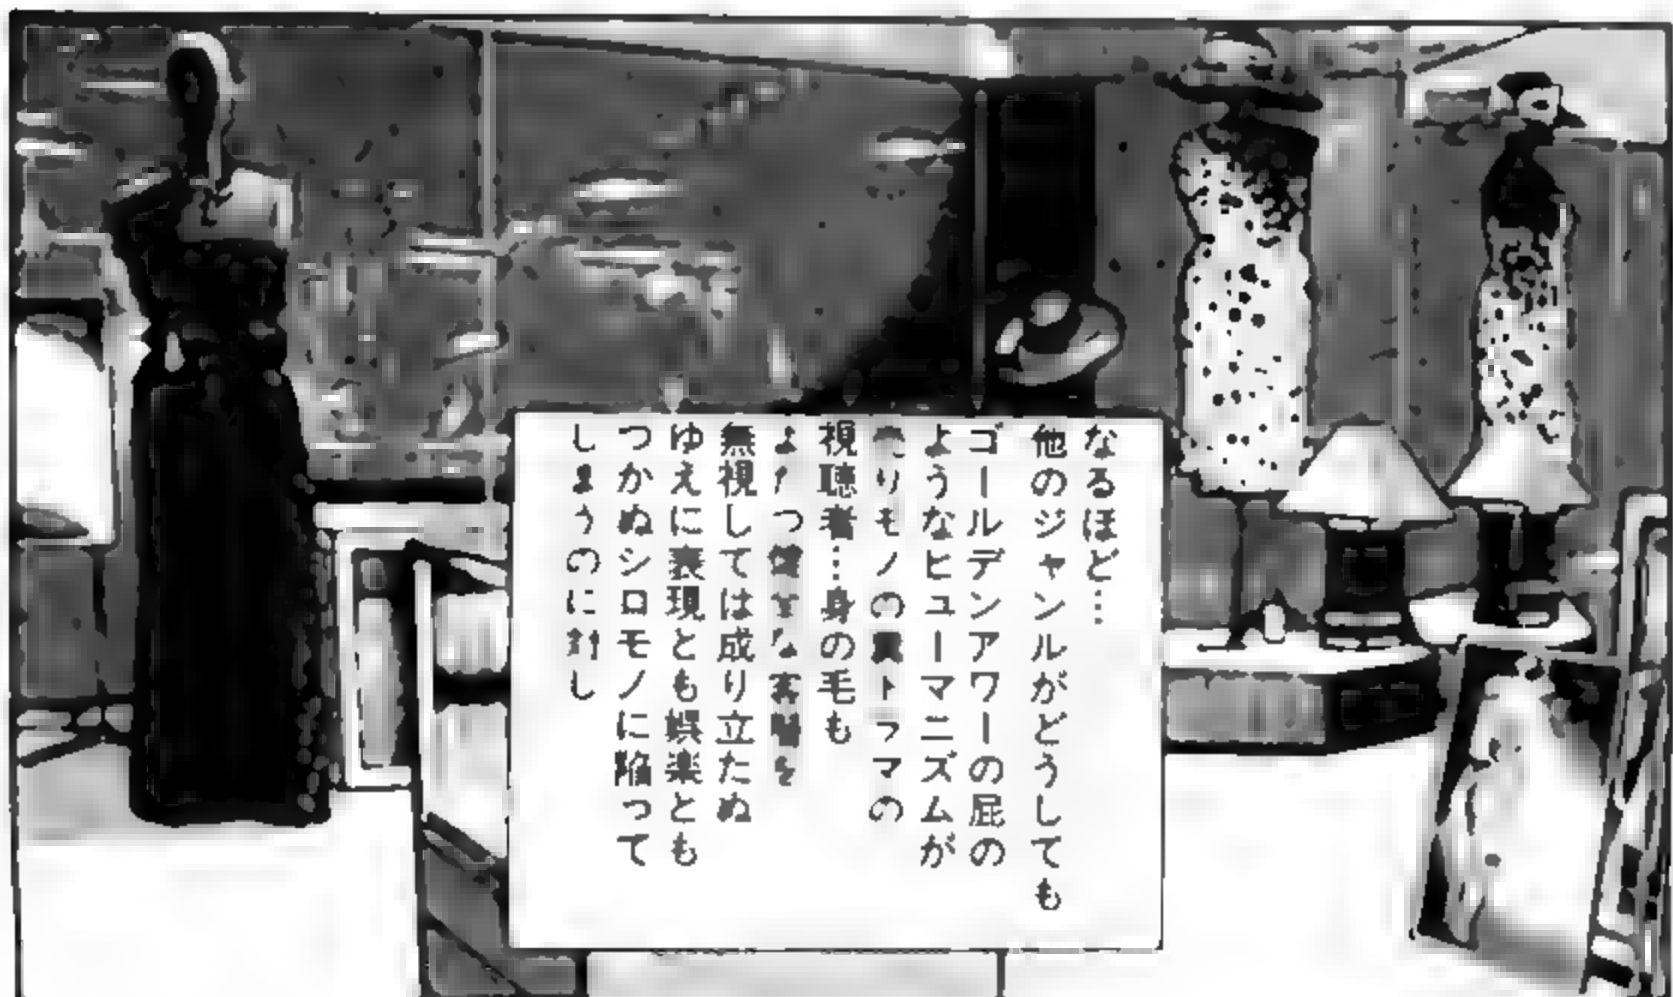 なるほど…
他のジャンルがどうしても
ゴールデンアワーの屁の
ようなヒューマニズムが
売りモノの裏ドラマの
視聴者…身の毛も
よだつ
無視しては成り立たぬ
ゆえに表現とも娯楽とも
つかぬシロモノに陥って
しまうのに対し